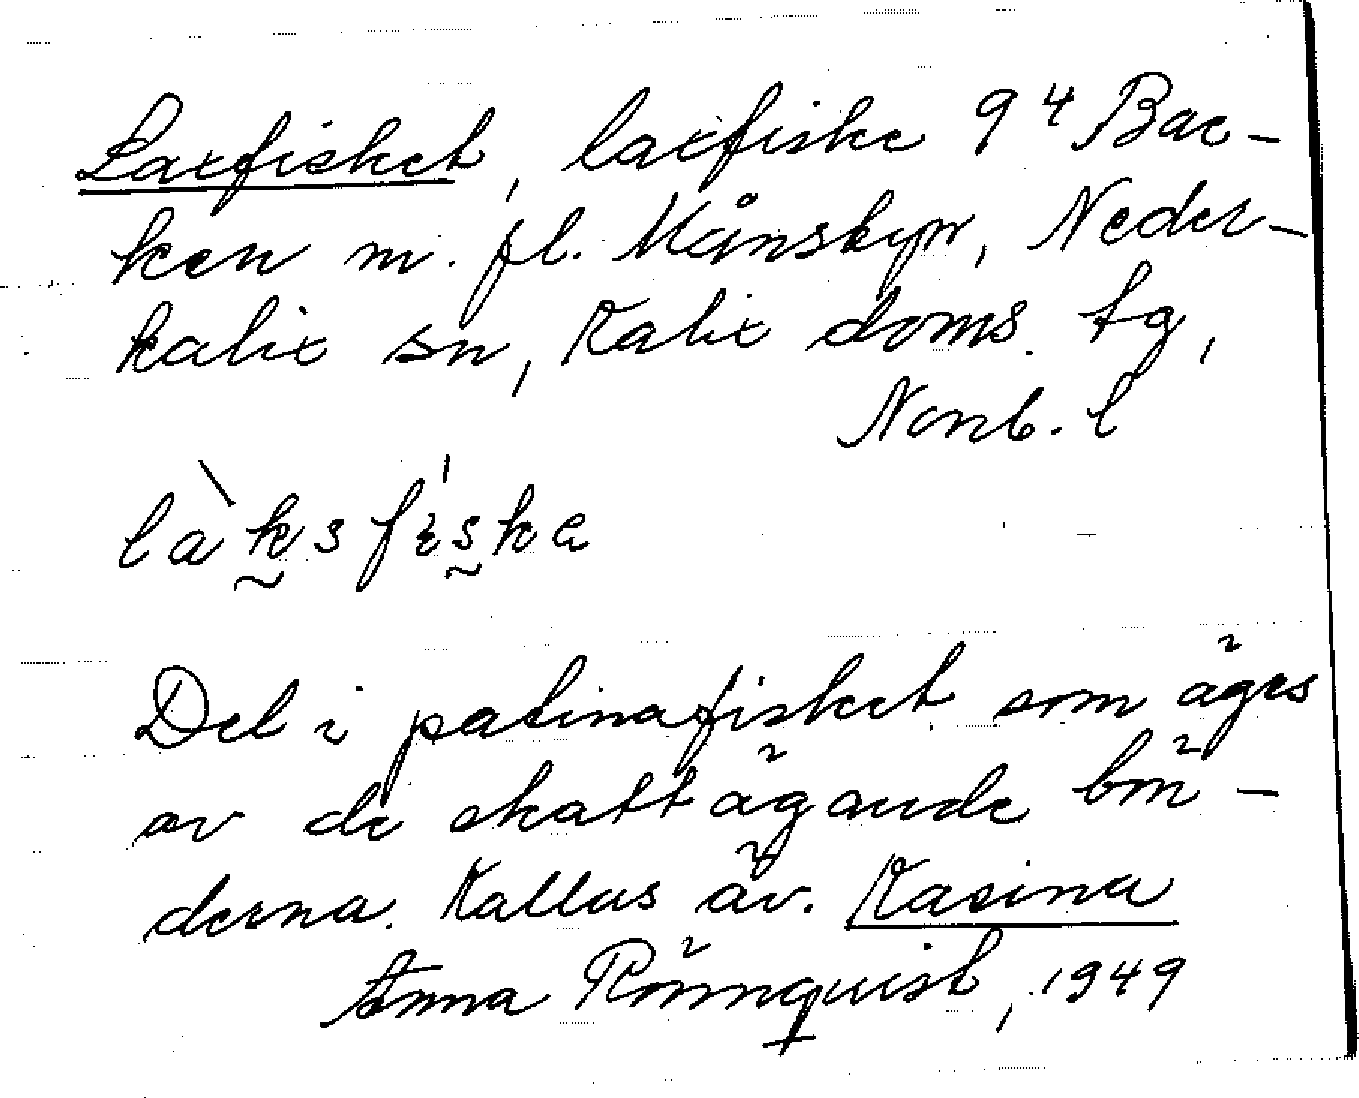 Laxfisket, laxfiske 9⁴ Bac-
ken m. fl. Månsbyn, Neder-
kalix sn, Kalix doms. tg,
Norrb. l
làksfiska
Del i patinafisket som äges
av de skattägande bön-
derna. Kallas äv. Kasina
Anna Rönnquist, 1949